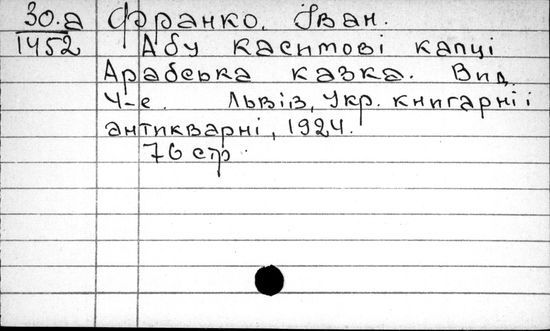 30.а Франко, Іван.
1452 Абу касимові капці
Арабська казка. Вид.
4-е. Львів, Укр. книгарні і
антикварні, 1924.
76 стр.